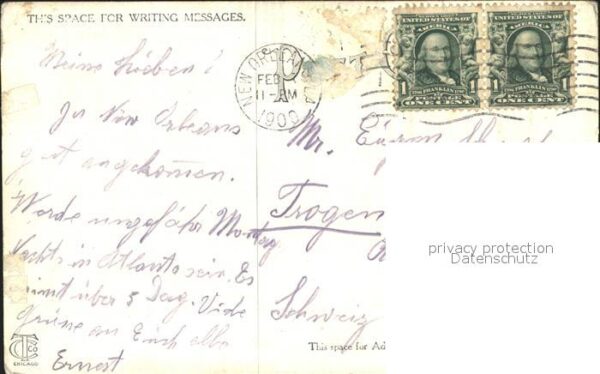 THIS SPACE FOR WRITING MESSAGES.
Meine Lieben!
In New Orleans
gut angekommen.
Werde ungefähr Montag
Nachts in Atlanta sein. Es
nimmt über 3 Dag. Viele
Grüsse an Euch alle
Ernest
CHICAGO
NEW ORLEANS
FEB
11-AM
UNITED STATES OF
AMERICA
1 FRANKLIN 1
POSTAGE
ONE CENT
UNITED STATES OF
AMERICA
1 FRANKLIN 1
POSTAGE
ONE CENT
Mr. Eugen
Trogen
Schweiz
This space for Ad
privacy protection
Datenschutz